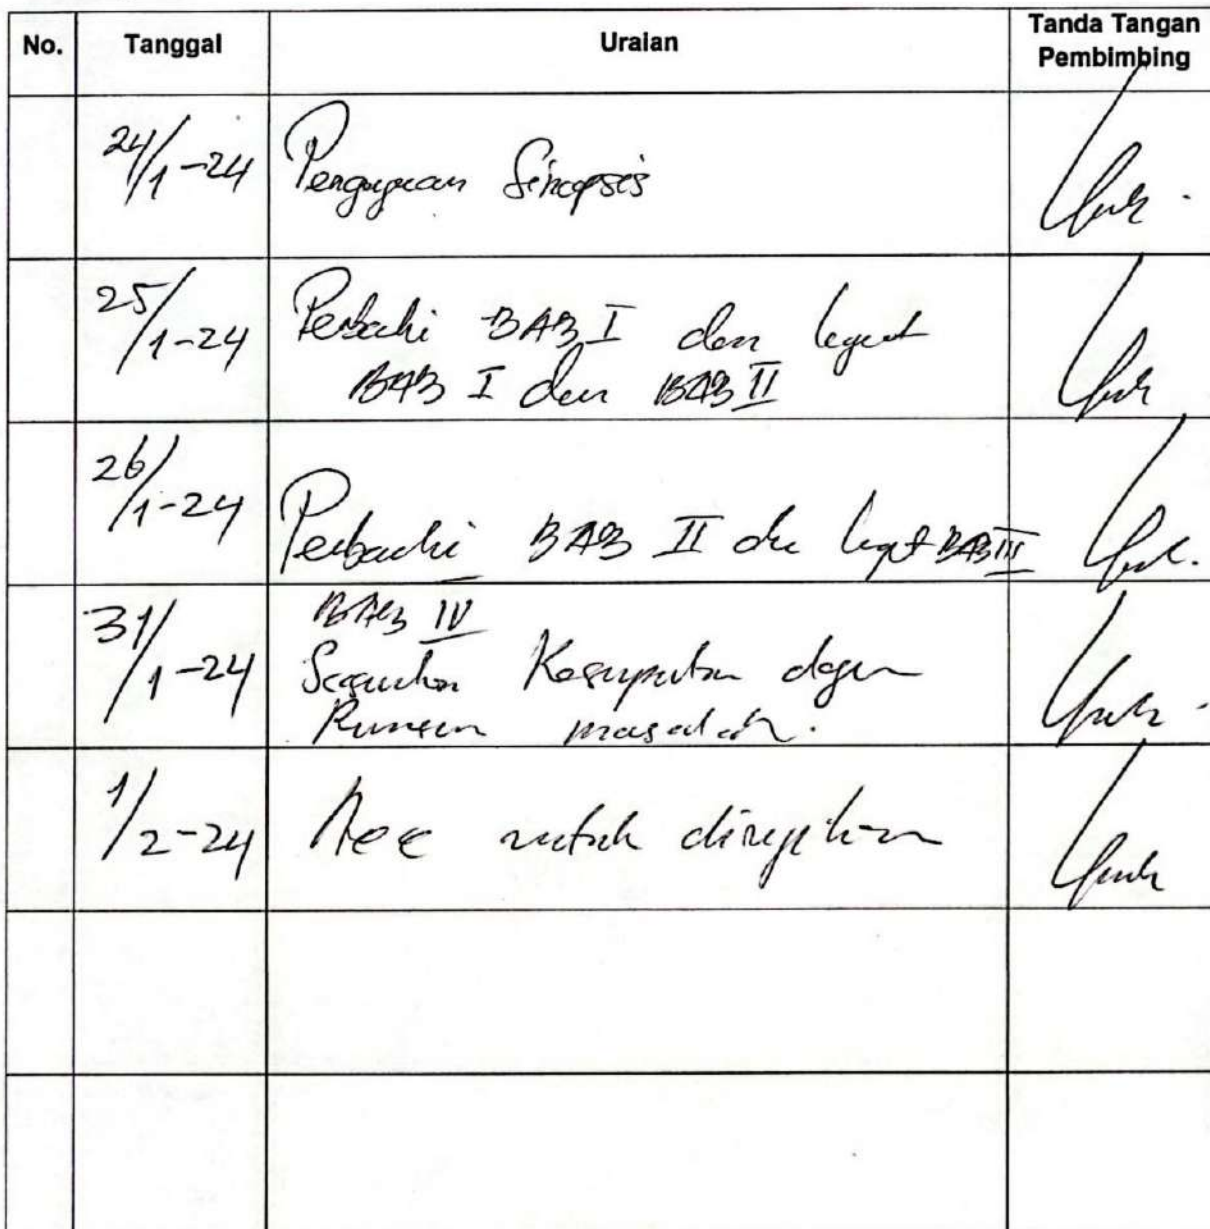 No. Tanggal Uraian Tanda Tangan
Pembimbing
24/1-24 Pengajuan Sinopsis
25/1-24 Perbaiki BAB I dan lanjut
BAB I dan BAB II
26/1-24 Perbaiki BAB II dan lanjut BAB III
31/1-24 BAB IV
Sesuaikan Kesimpulan dengan
Rumusan masalah.
1/2-24 Acc untuk diujikan